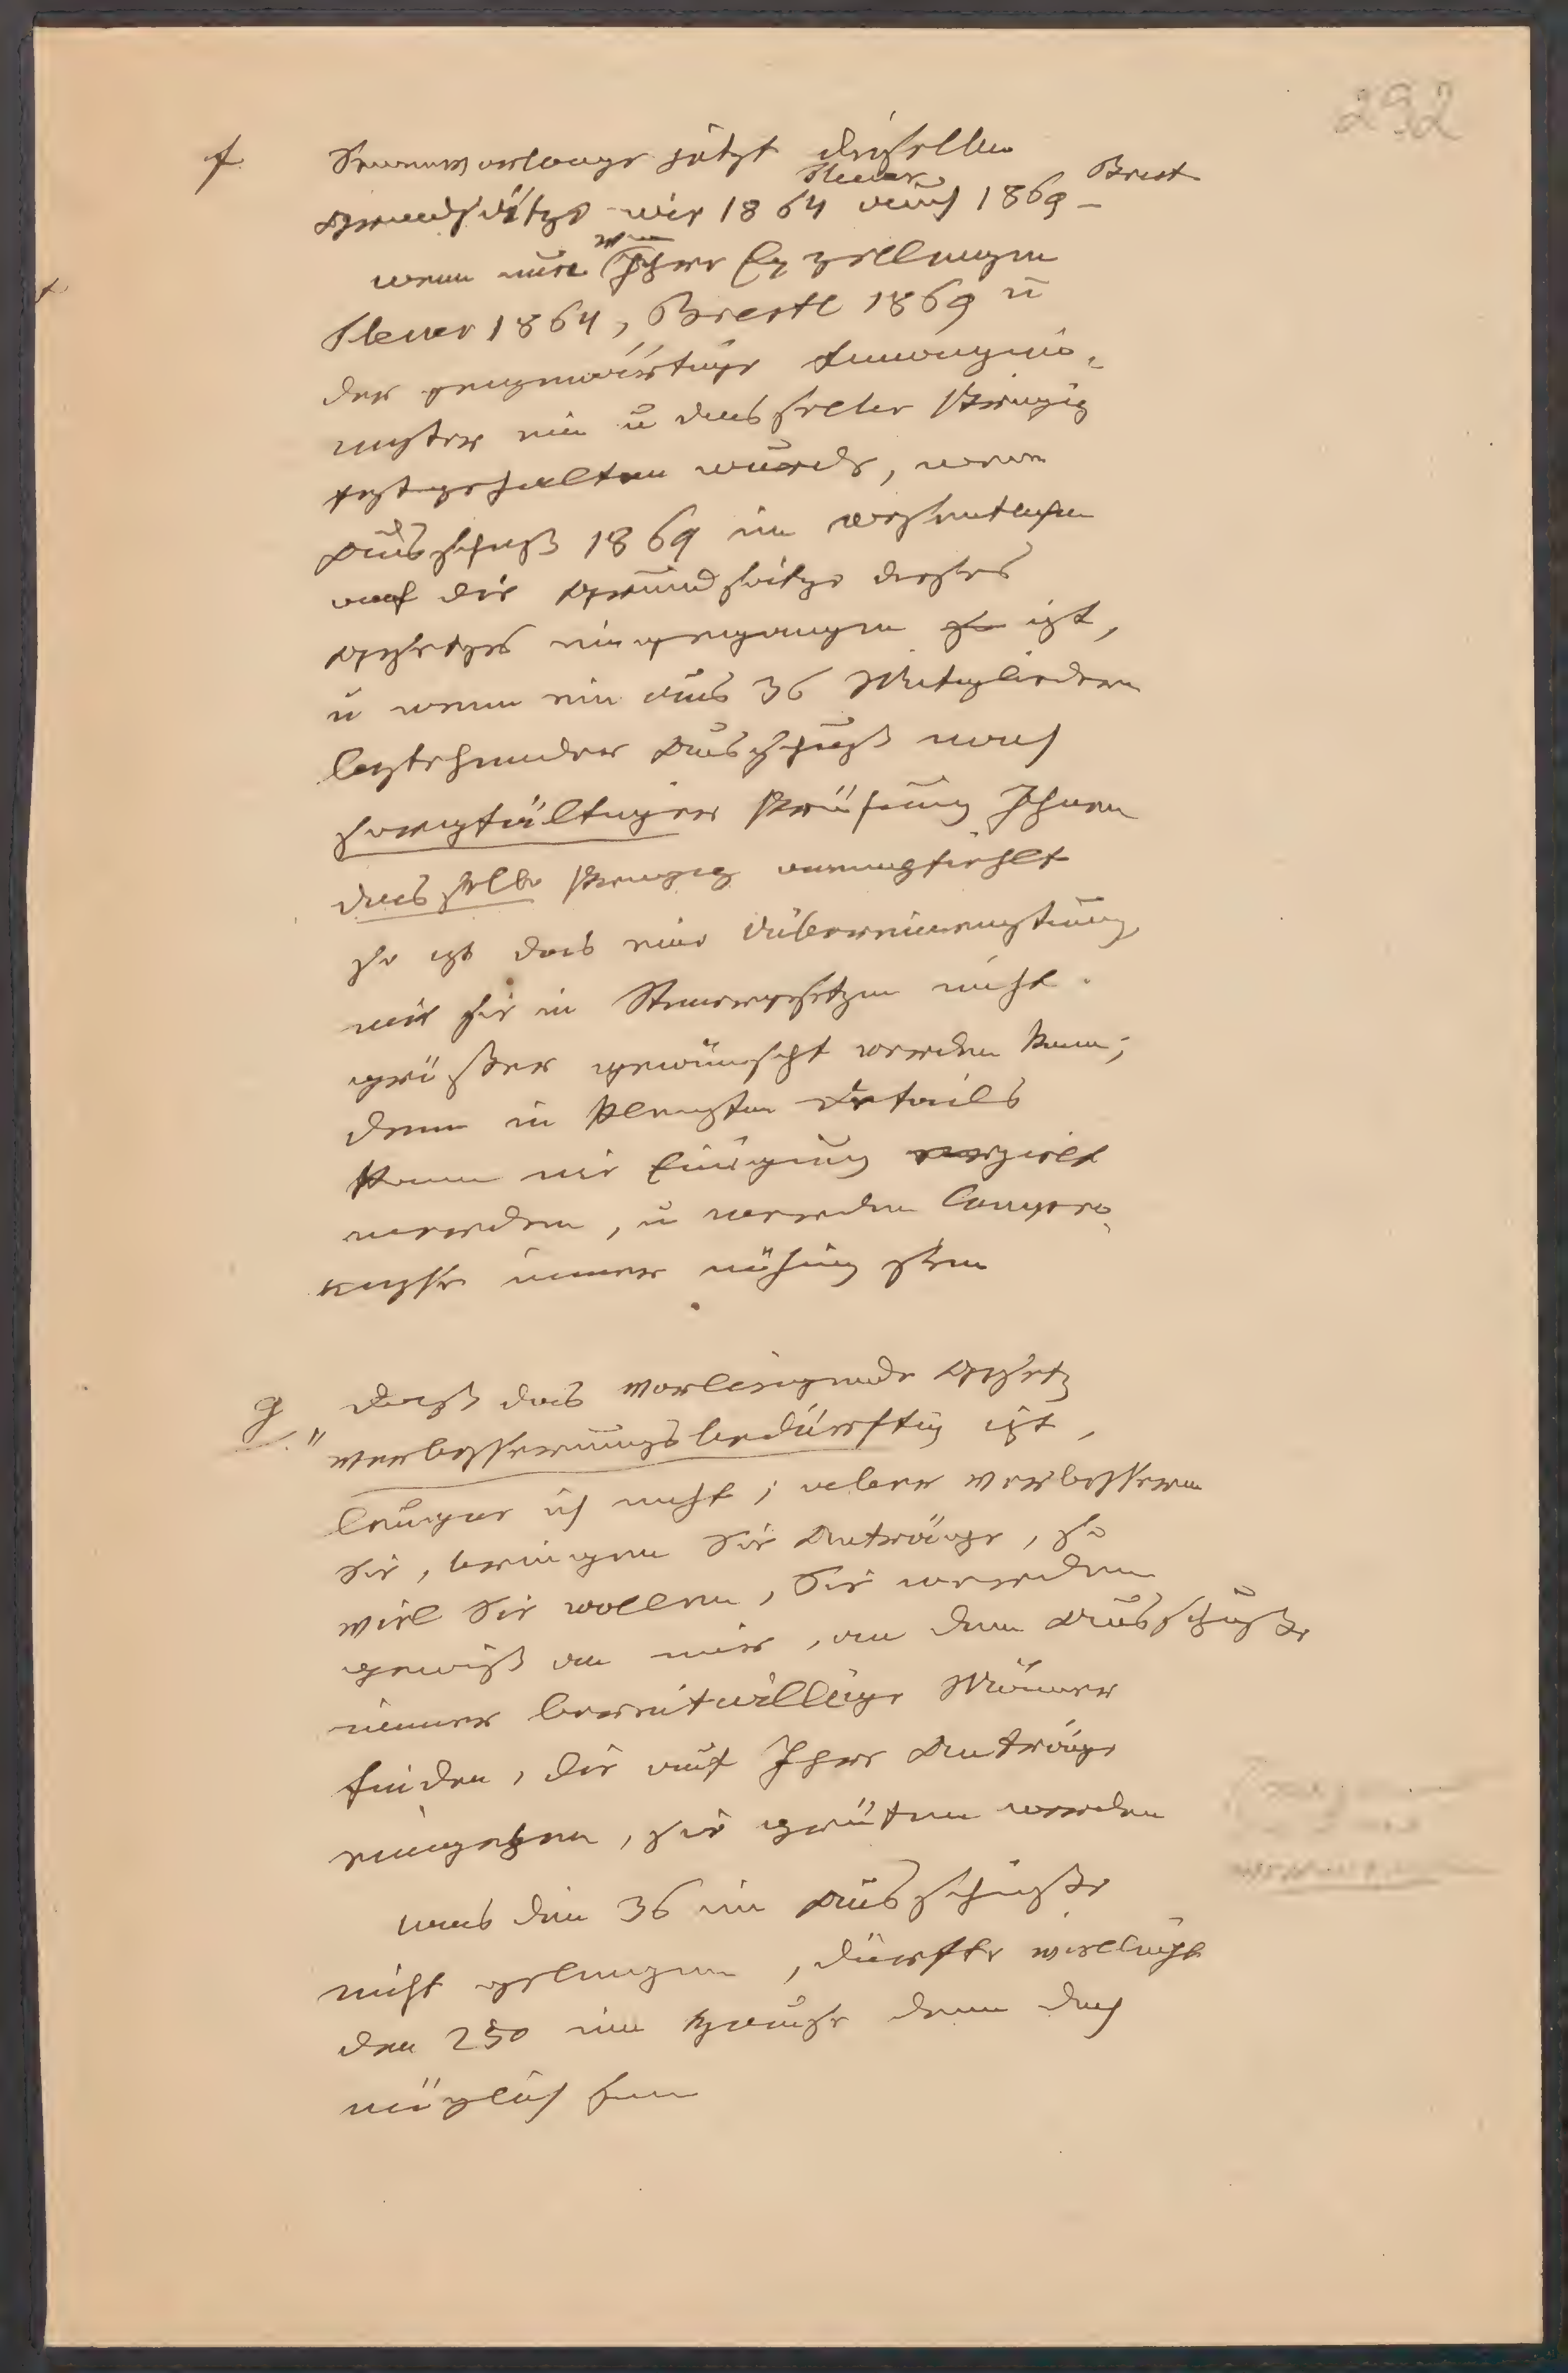 292
f. Steuervorlage jetzt dieselben
Plener
Brest
Grundsätze wie 1864 auch 1869 –
wenn nun Ihre Exzellenzen
Plener 1864, Brestl 1869 u
der gegenwärtige Finanzmi-
nister ein u dasselbe Prinzip
festgehalten wurde, wenn
Ausschuß 1869 im wesentlichen
auf die Grundsätze dieses
Gesetzes eingegangen ist,
u wenn ein aus 36 Mitgliedern
bestehender Ausschuß nach
sorgfältiger Prüfung Ihnen
dasselbe Prinzip anempfiehlt
so ist das eine Übereinstimmung,
wie sie in Steuergesetzen nicht
größer gewünscht werden kann;
denn in kleinsten Details
kann nie Einigung erzielt
werden, u werden Compro-
misse immer nöthig sein
g. Daß das vorliegende Gesetz
"verbesserungsbedürftig ist,
leugne ich nicht; aber verbessern
Sie, bringen Sie Anträge, so
viel Sie wollen, Sie werden
gewiß an mir, an dem Ausschuße
immer bereitwillige Männer
finden, die auf Ihre Anträge
eingehen, sie prüfen werden
was den 36 im Ausschuße
nicht gelungen, dürfte vielleicht
den 250 im Hause denn doch
möglich sein